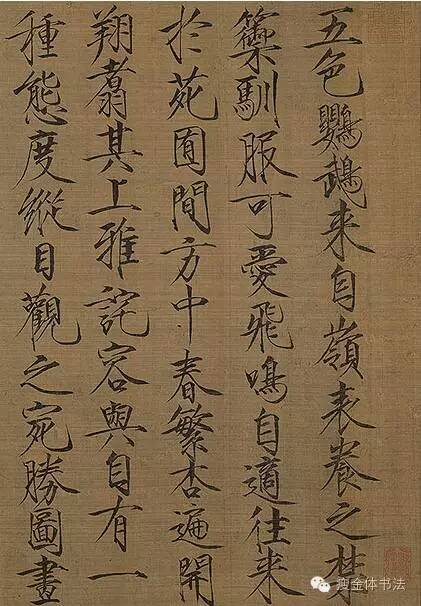 五色鸚鵡来自嶺表養之禁
籞馴服可愛飛鳴自適往来
於苑囿間方中春繁杏遍開
翔翥其上雅詫容與自有一
種態度縱目觀之宛勝圖畫
瘦金体书法